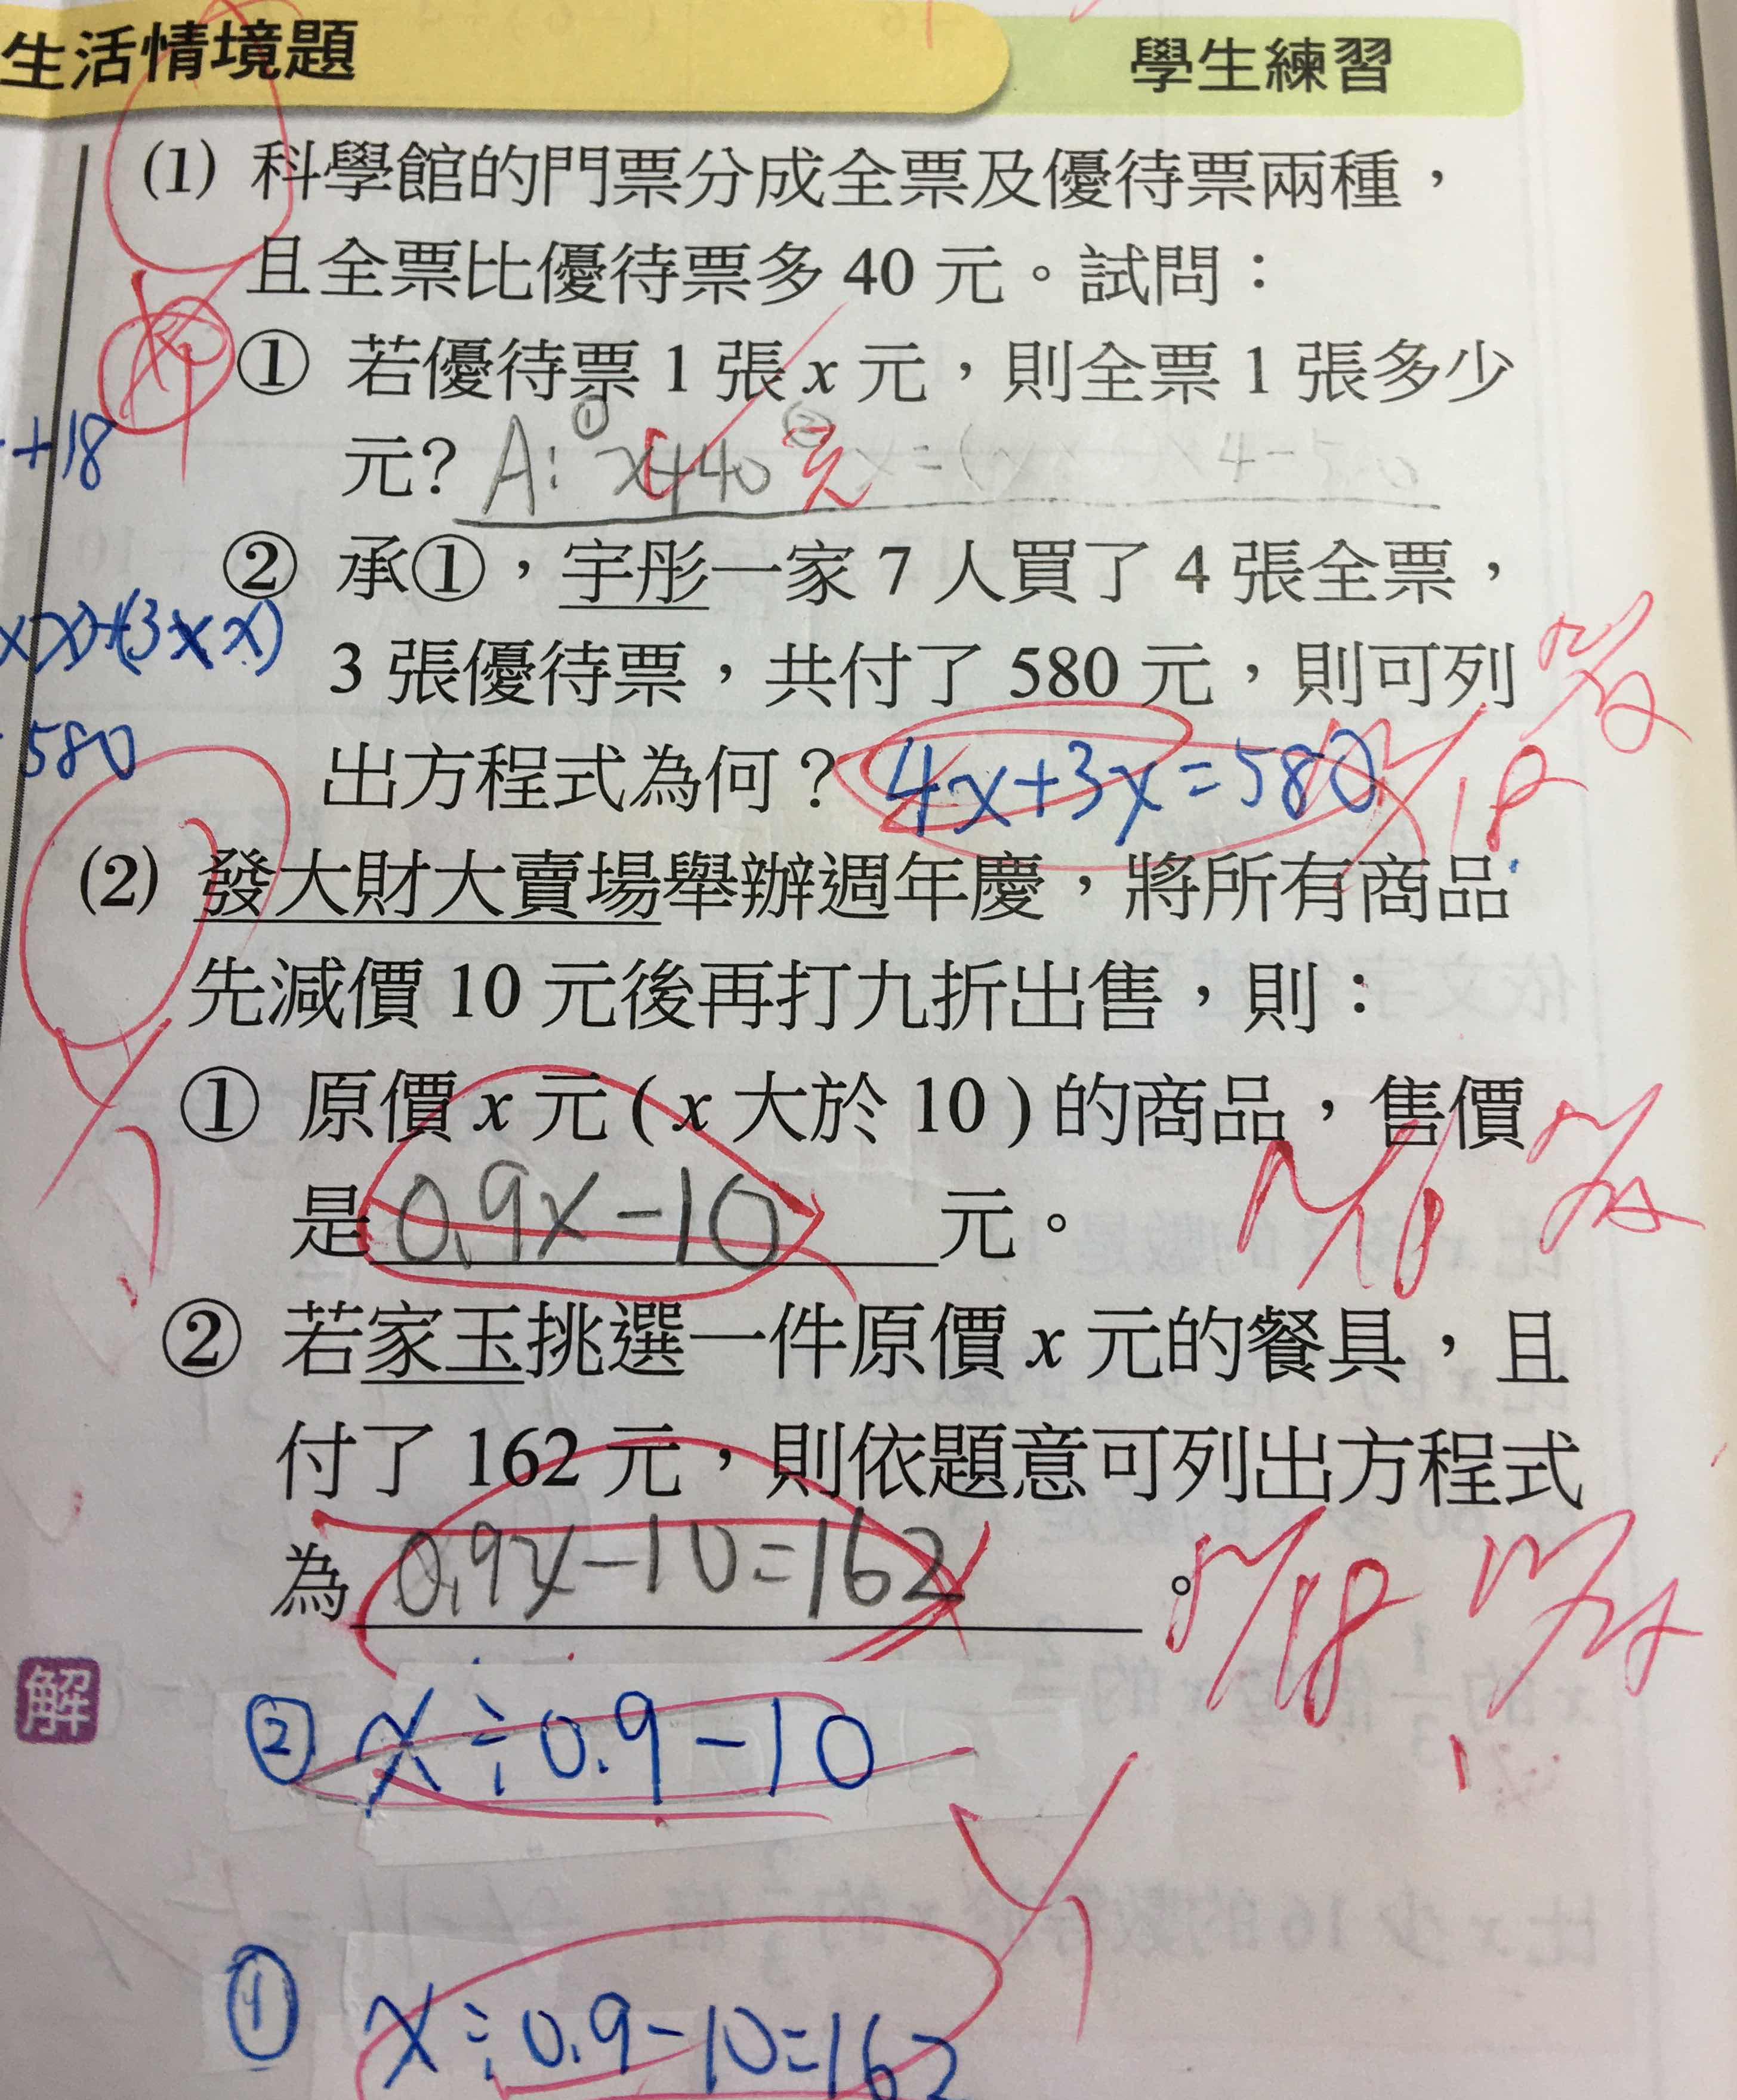 生活情境題
學生練習
(1) 科學館的門票分成全票及優待票兩種，
且全票比優待票多 40 元。試問：
① 若優待票 1 張 x 元，則全票 1 張多少
元? A: x+40 元
② 承①，宇彤一家 7 人買了 4 張全票，
3 張優待票，共付了 580 元，則可列
出方程式為何？ 4x+3x=580
+18
x)+(3×x)
580
(2) 發大財大賣場舉辦週年慶，將所有商品
先減價 10 元後再打九折出售，則：
① 原價 x 元 ( x 大於 10 ) 的商品，售價
是 0.9x-10 元。
② 若家玉挑選一件原價 x 元的餐具，且
付了 162 元，則依題意可列出方程式
為 0.9x-10=162 。
解
② x÷0.9-10
① x÷0.9-10=162